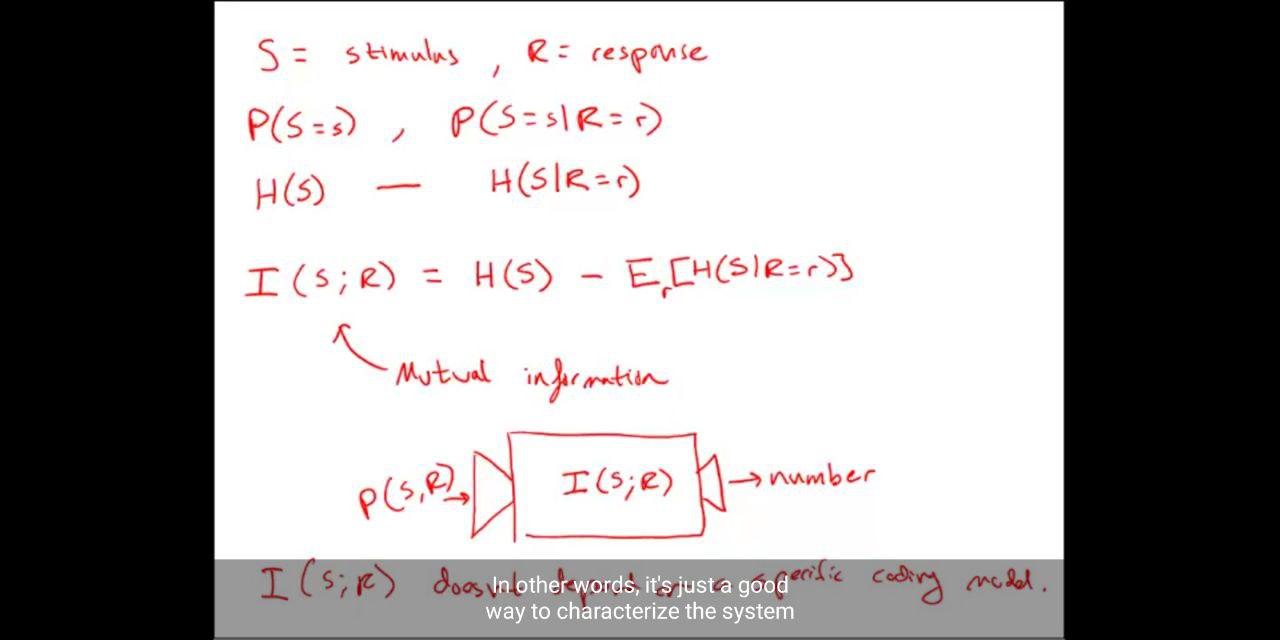 S = stimulus , R = response
P(S=s) , P(S=s|R=r)
H(S) — H(S|R=r)
I(S;R) = H(S) - E_r[H(S|R=r)]
Mutual information
P(S,R) → I(S;R) → number
I(S;R) specific coding model.
In other words, it's just a good
way to characterize the system